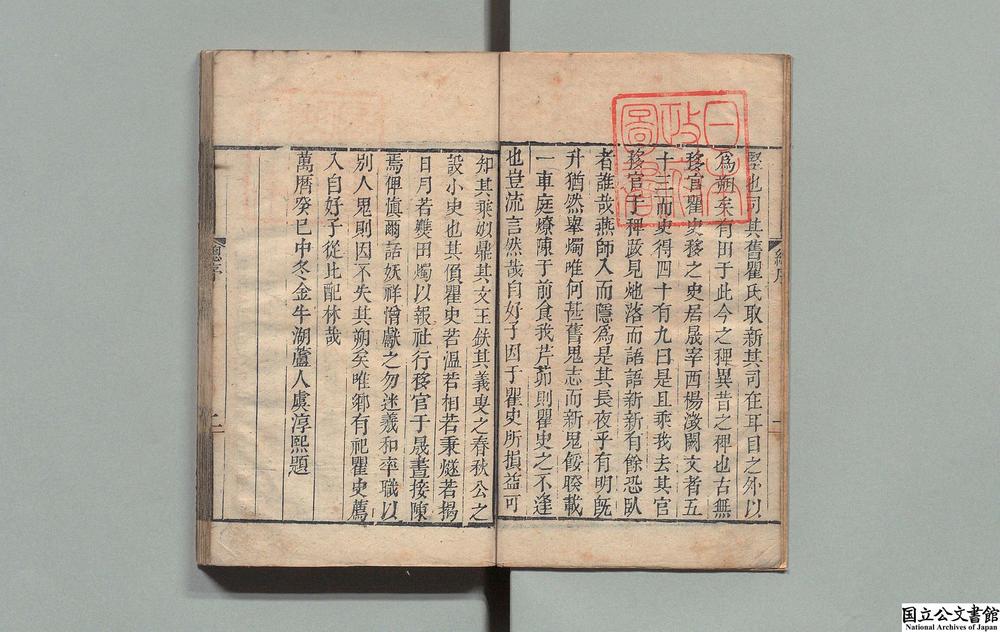 也司其舊瞿氏取新其司在耳目之外以
為朔矣有田于此今之稗異昔之稗也古無
移官瞿史移之史居晟宰酉楊潑闕文者五
十三而史得四十有九曰是且乘我去其官
移官于稗啟見灺落而語語新新有餘恐臥
者誰哉燕師入而隱為是其長夜乎有明旣
升猶然舉燭唯何甚舊鬼志而新鬼餒睽載
一車庭燎陳于前食我芹茆則瞿史之不逢
也豈流言然哉自好子因于瞿史所損益可
知其乘奴鼎其文王鈇其義叟之春秋公之
設小史也其傎瞿史若溫若相若秉燧若揭
日月若爕田燭以報社行移官于晟晝接陳
焉俾慎爾話妖祥僧獻之勿迷羲和卒職以
別人鬼則因不失其朔矣唯鄉有祀瞿史薦
入自好子從比配林哉
萬曆癸巳中冬金牛湖蘆人虞淳熙題
總序
一
總序
二
日本政府圖書
国立公文書館
National Archives of Japan